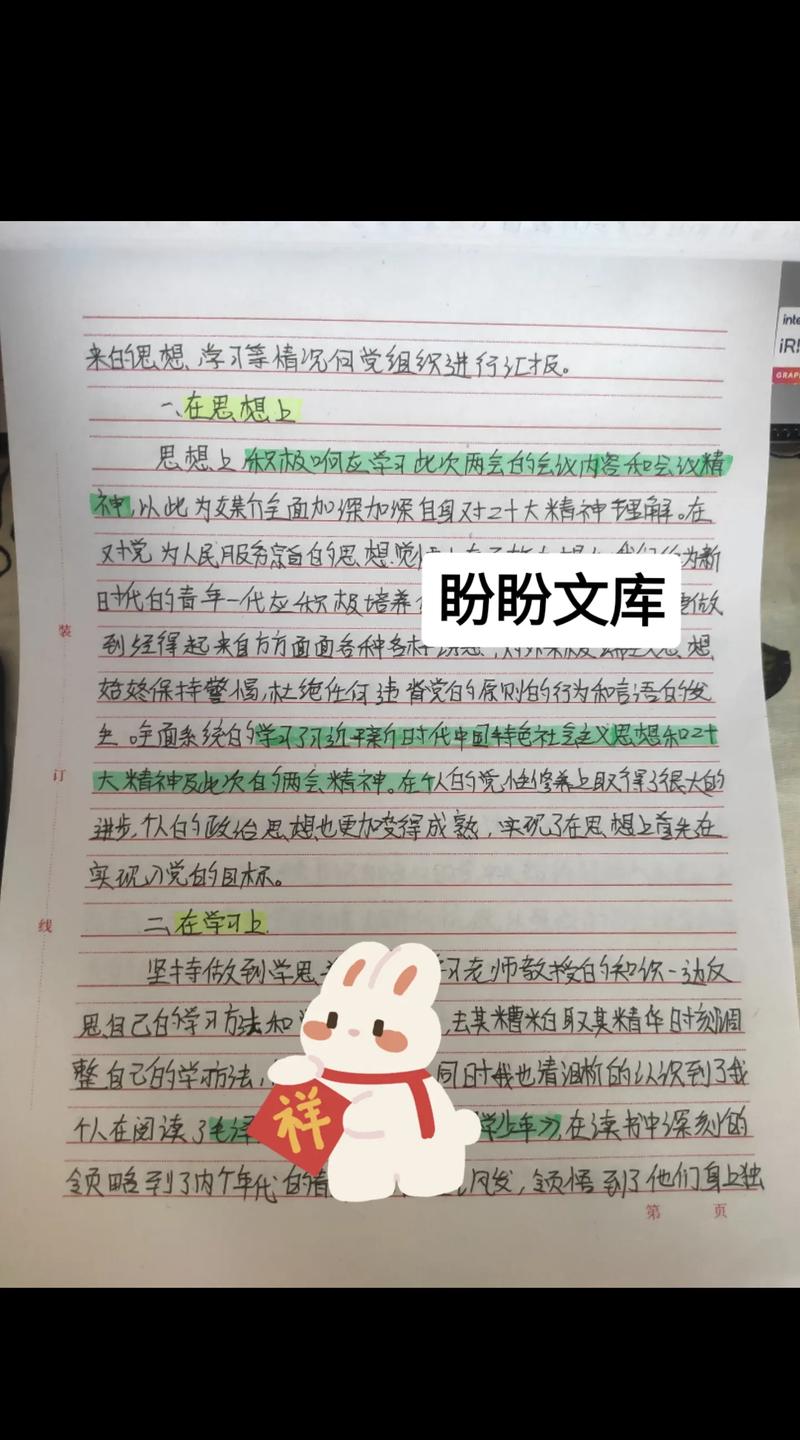 来的思想、学习等情况向党组织进行汇报。
一、在思想上
思想上积极响应学习此次两会的会议内容和会议精
神,以此为媒介全面加深加深自身对二十大精神理解。在
对党为人民服务宗旨的思想觉悟上
为新
时代的青年一代应积极培养
做
盼盼文库
到经得起来自方方面面各种各样
思想
始终保持警惕,杜绝任何违背党的原则的行为和言语的发
生。全面系统的学习了习近平新时代中国特色社会主义思想和二十
大精神及此次的两会精神。在个人的党性修养上取得了很大的
进步,个人的政治思想也更加变得成熟,实现了在思想上首先在
实现入党的目标。
二、在学习上
坚持做到学思
习老师教授的知识一边反
思自己的学习方法和
,去其糟粕取其精华时刻调
整自己的学习方法,
同时我也清晰的认识到了我
个人在阅读了毛泽
学少年》,在读书中深刻的
领略到了内个年代的青
风发,领悟到了他们身上独
祥
装
订
线
第 页
inte
iRI
GRAP